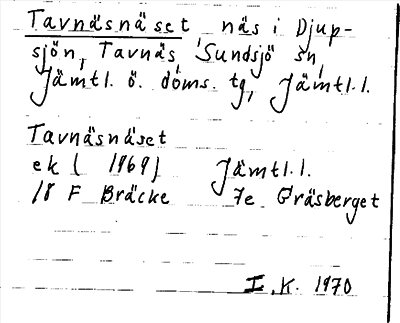 Tavnäsnäset näs i Djup-
sjön, Tavnäs, Sundsjö sn,
Jämtl. ö. doms. tg, Jämtl.l.
Tavnäsnäset
ek ( 1969) Jämtl.l.
18 F Bräcke 7e Gräsberget
I.K. 1970